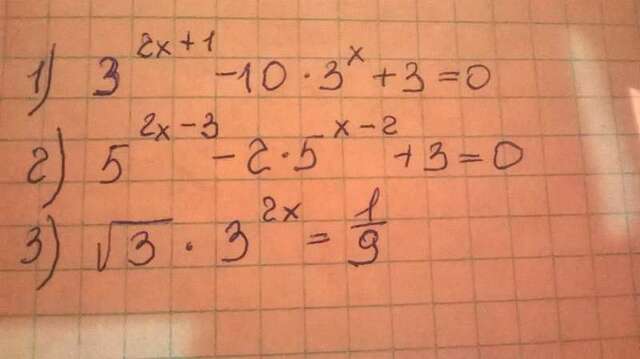 1) 3^{2x+1} - 10 · 3^x + 3 = 0
2) 5^{2x-3} - 2 · 5^{x-2} + 3 = 0
3) √3 · 3^{2x} = 1/9